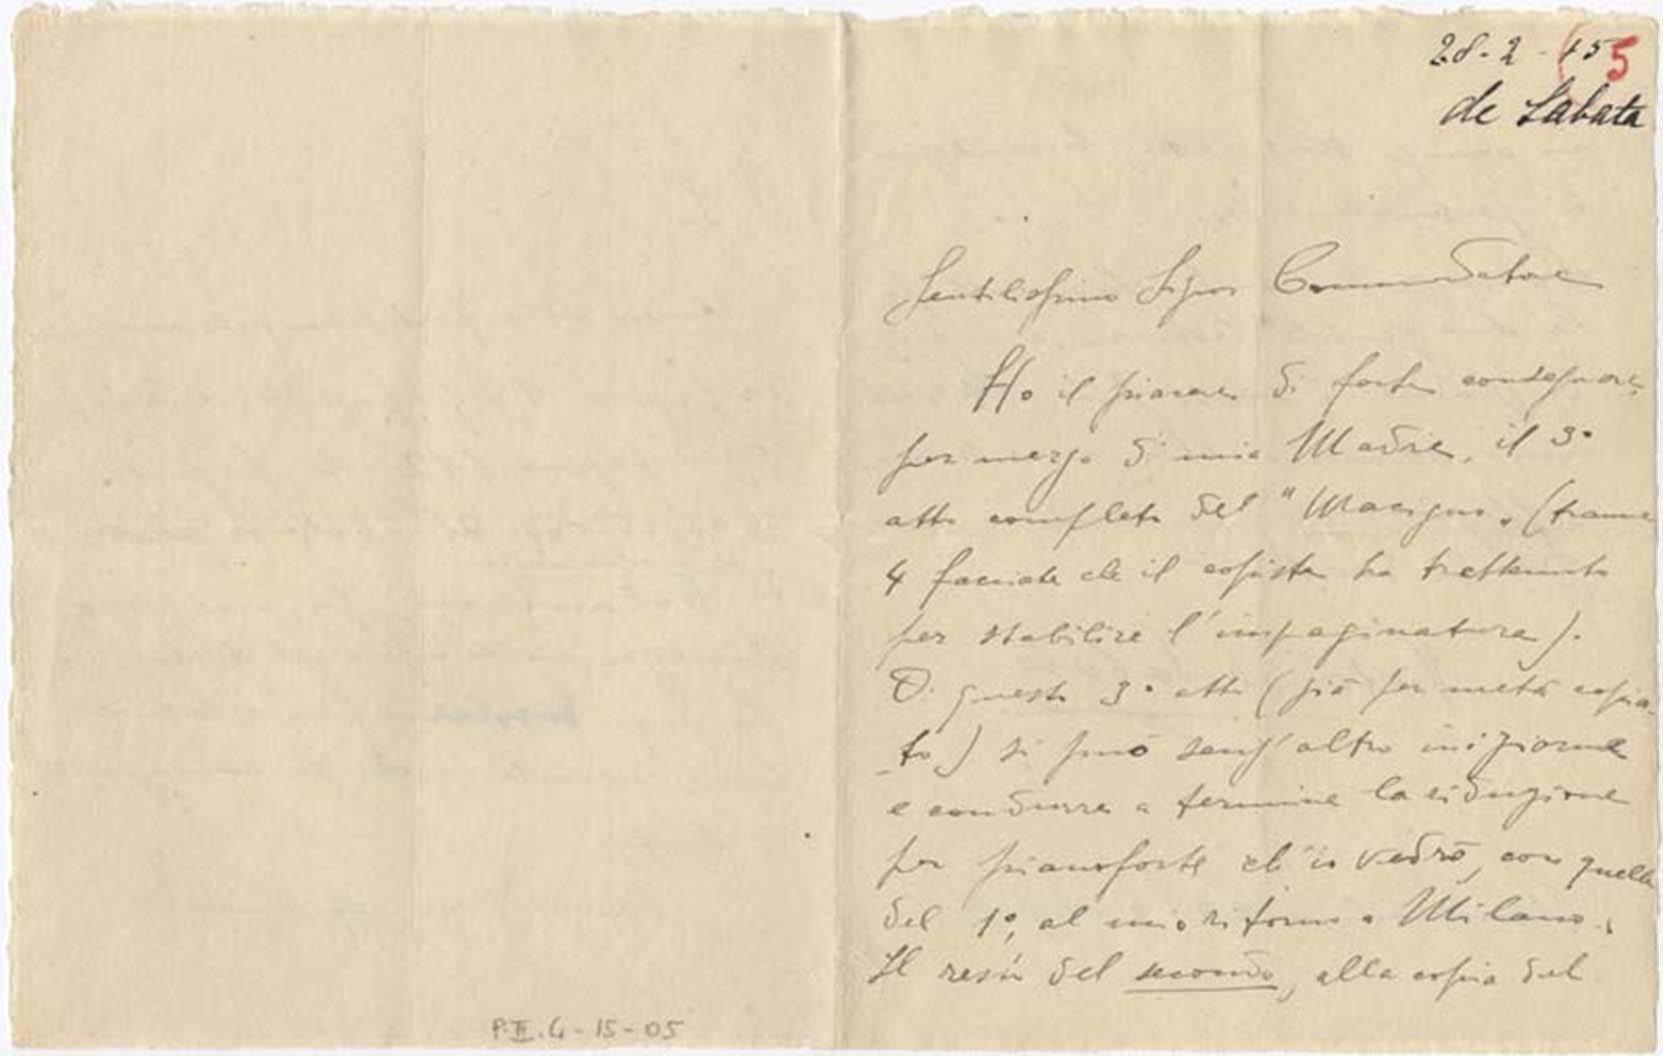 28-2-15 5
de Sabata
Gentilissimo Signor Commendatore
Ho il piacere di farLe consegnare,
per mezzo di mia Madre, il 3°
atto completo del "Macigno„ (tranne
4 facciate che il copista ha trattenuto
per stabilire l'impaginatura).
Di questo 3° atto (già per metà copia-
-to) si può senz'altro iniziarne
e condurre a termine la riduzione
per pianoforte ch'io vedrò, con quella
del 1°, al mio ritorno a Milano.
Il resto del secondo, alla copia del
P.II.4-15-05